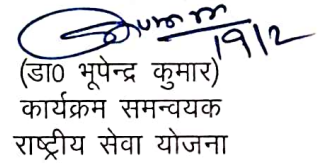 19/2
(डा० भूपेन्द्र कुमार)
कार्यक्रम समन्वयक
राष्ट्रीय सेवा योजना